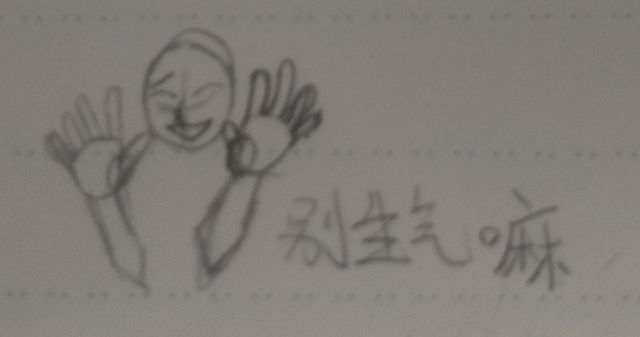 别生气嘛